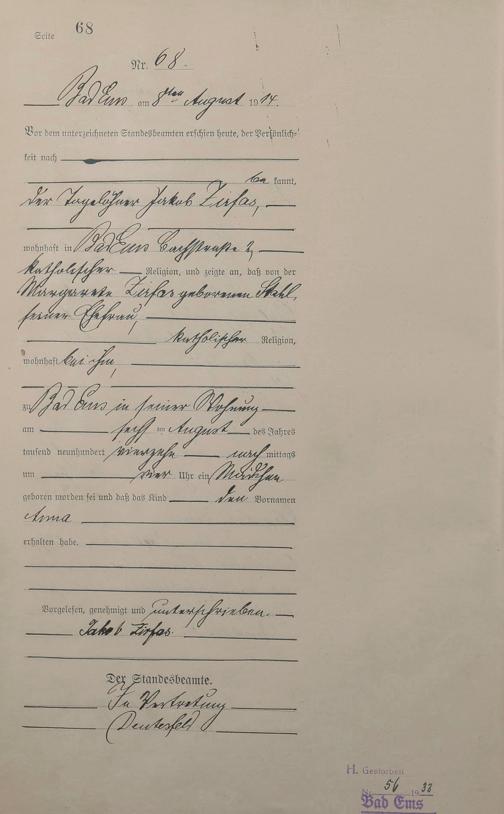 Seite 68
Nr. 68.
Bad Ems am 8ten August 1914.
Vor dem unterzeichneten Standesbeamten erschien heute, der Persönlich-
keit nach
bekannt,
der Tagelöhner Jakob Zirfas,
wohnhaft in Bad Ems Bachstraße 2,
katholischer Religion, und zeigte an, daß von der
Margarete Zirfas geborenen Stahl,
seiner Ehefrau,
katholischer Religion,
wohnhaft bei ihm,
zu Bad Ems in seiner Wohnung
am sechs ten August des Jahres
tausend neunhundert vierzehn nachmittags
um vier Uhr ein Mädchen
geboren worden sei und daß das Kind den Vornamen
Anna
erhalten habe.
Vorgelesen, genehmigt und unterschrieben.
Jakob Zirfas.
Der Standesbeamte.
In Vertretung
H. Gestorben
Nr. 56 1932
Bad Ems